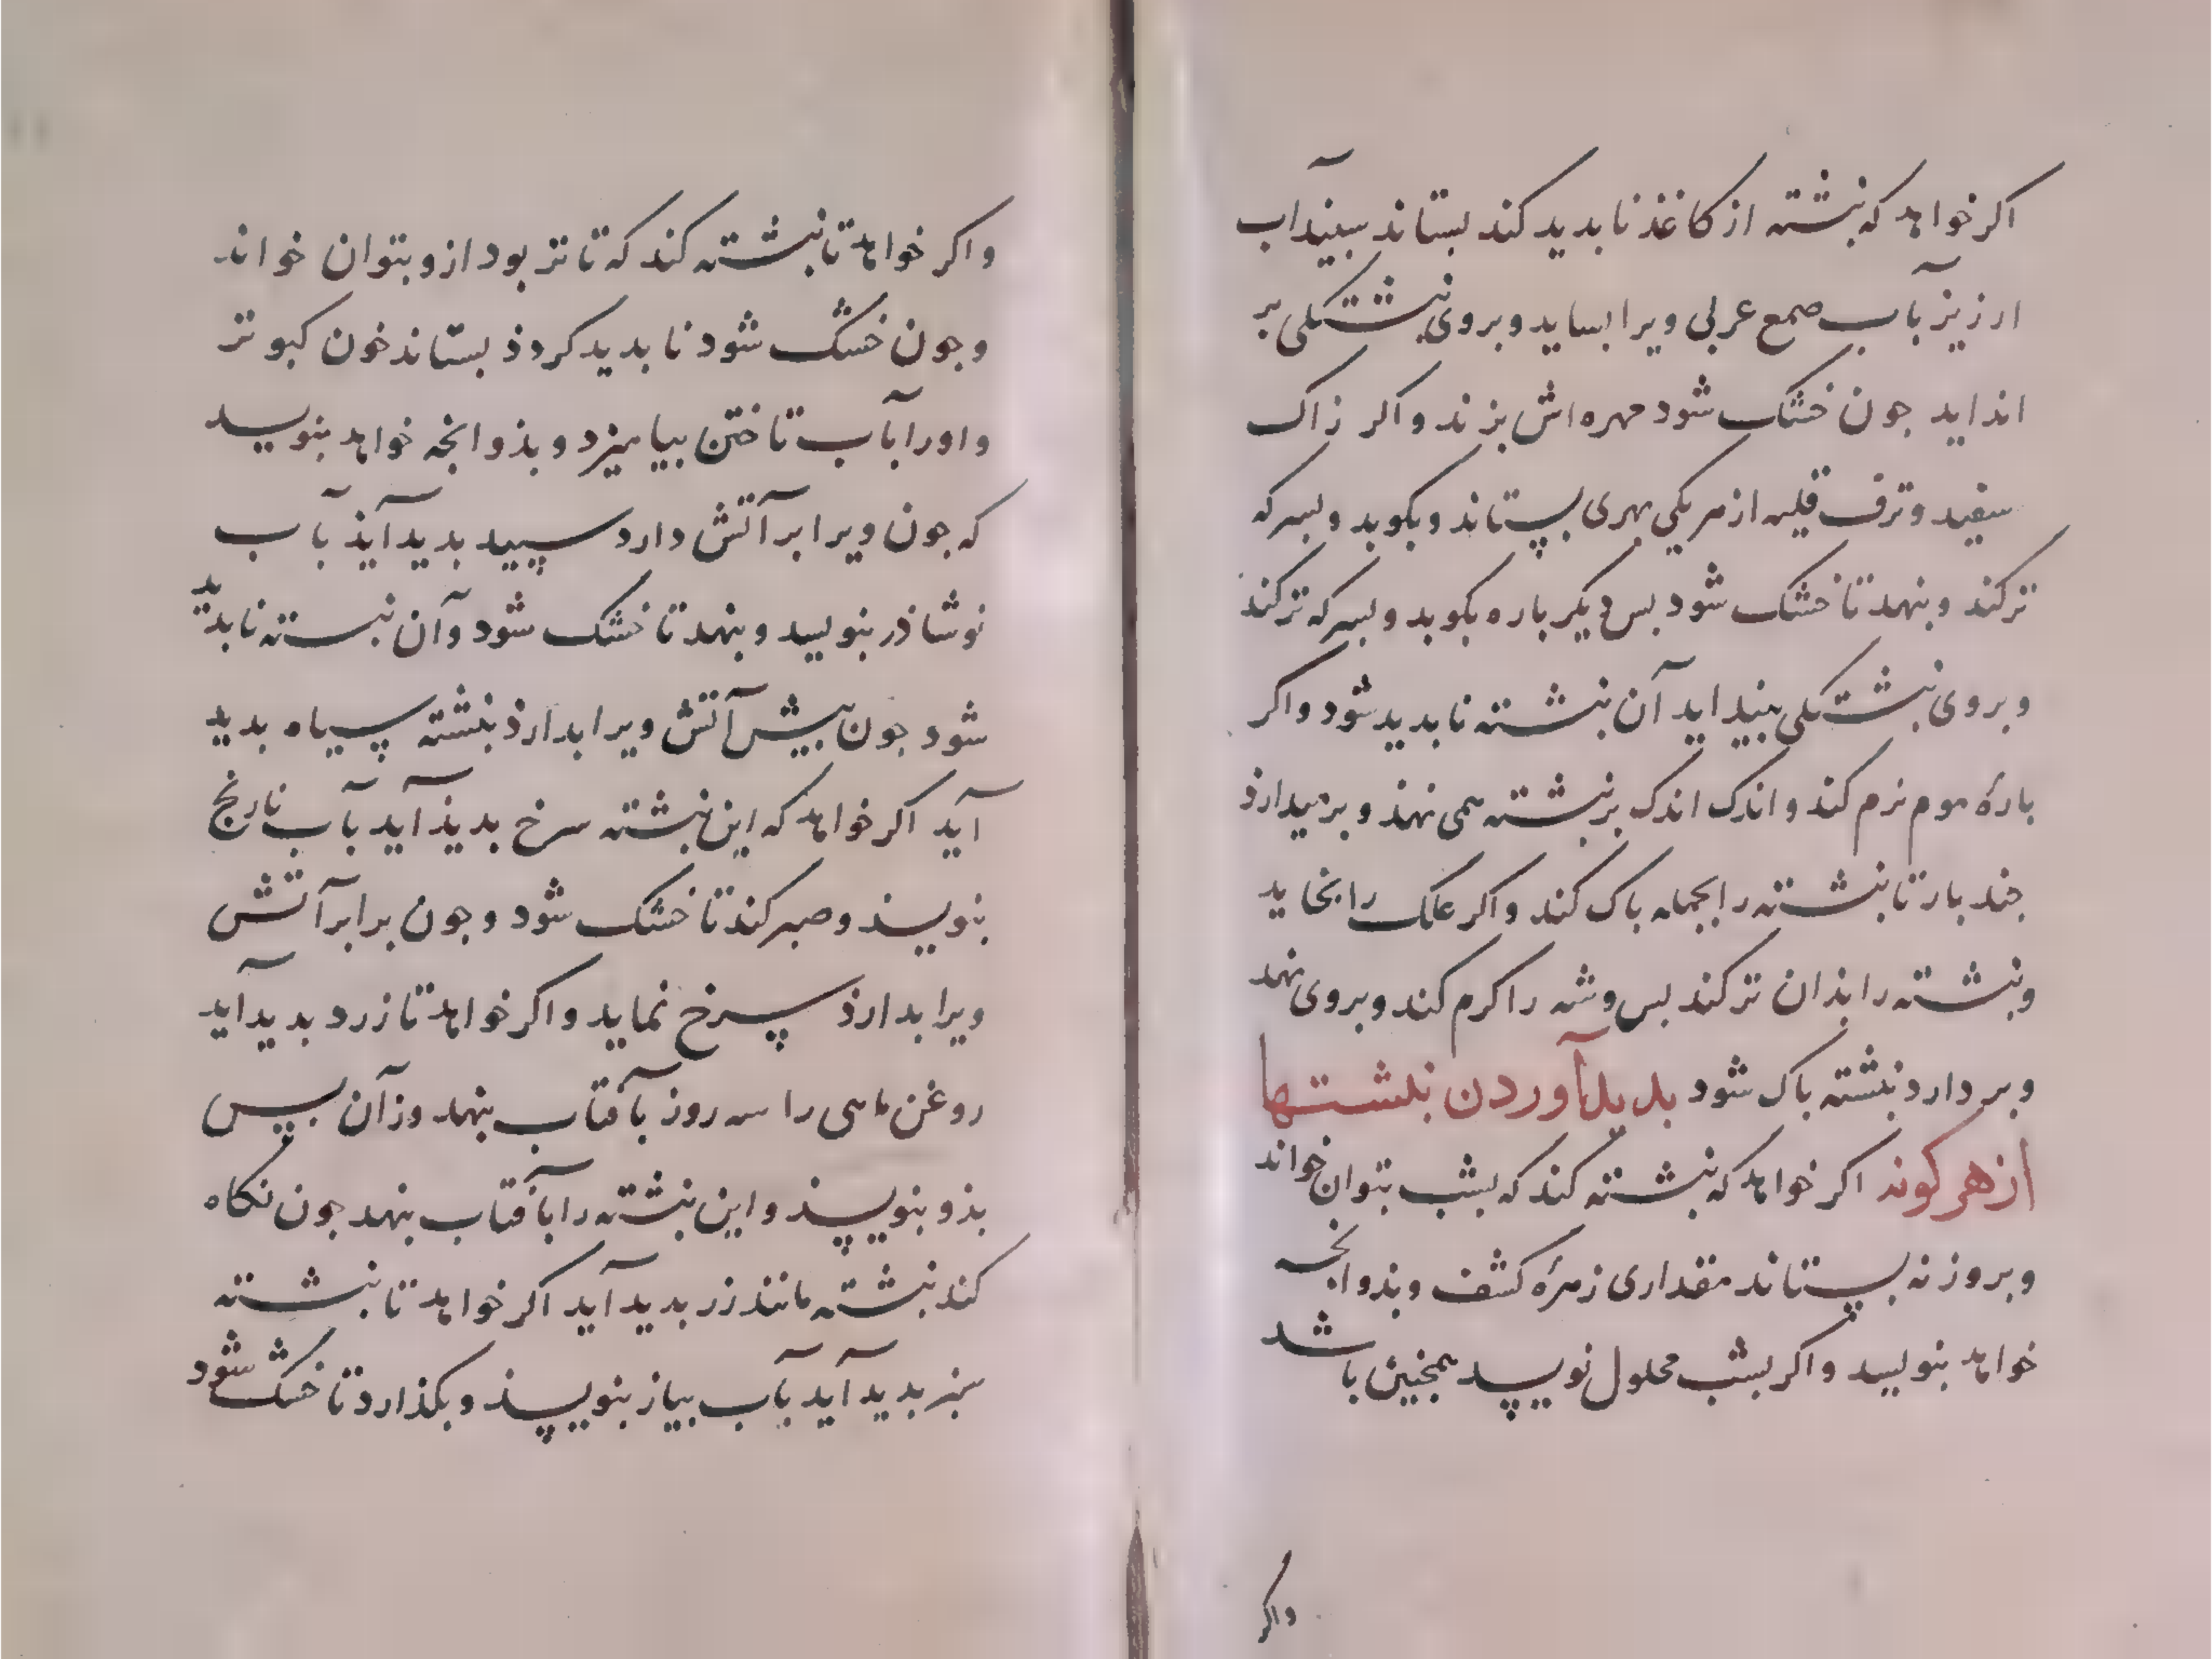 اکر خواهد که نبشته از کاغذ نابدید کند بستاند سپیداب
ارزیز بآب صمع عربی ویرا بساید و بروی نبشتکی بر
انداید جون خشک شود مهره اش بزند و اکر زاک
سفید و ترف قلیه از هر یکی بهری بستاند و بکوبد و بسرکه
تر کند و بنهد تا خشک شود بس دیکر باره بکوبد و بسرکه تر کند
و بروی نبشتکی بینداید آن نبشته نابدید شود و اکر
بارهٔ موم نرم کند و اندک اندک بر نبشته همی نهذ و بر میدارذ
جند بار تا نبشته را بجمله باک کند و اکر علک را بخاید
و نبشته را بذان تر کند بس وشه را کرم کند و بروی نهد
و بر دارد نبشته باک شود بدید آوردن نبشتها
از هر کونه اکر خواهد که نبشته کند که بشب بتوان خواند
و بروز نه بستاند مقداری زهرهٔ کشف و بذو انجه
خواهد بنویسد و اکر بشب محلول نویسد همجنین باشد
واکر
و اکر خواهد تا نبشته کند که تا تر بود ازو بتوان خواند
و جون خشک شود نابدید کردذ بستاند خون کبوتر
و اورا بآب تاختن بیامیزد و بذو انجه خواهد بنویسد
که جون ویرا بر آتش دارد سپید بدید آیذ بآب
نوشاذر بنویسد و بنهد تا خشک شود و آن نبسته نابدید
شود جون بیش آتش ویرا بدارذ نبشته سیاه بدید
آید اکر خواهد که این نبشته سرخ بدیذ آید بآب نارنج
بنویسذ و صبر کند تا خشک شود و جون برابر آتش
ویرا بدارذ سرخ نماید و اکر خواهد تا زرد بدید آید
روغن ماهی را سه روز بآفتاب بنهد وز آن بس
بذو بنویسذ و این نبشته را بآفتاب بنهد جون نکاه
کند نبشته مانند زر بدید آید اکر خواهد تا نبشته
سبز بدید آید بآب بیاز بنویسذ و بکذارد تا خشک شود